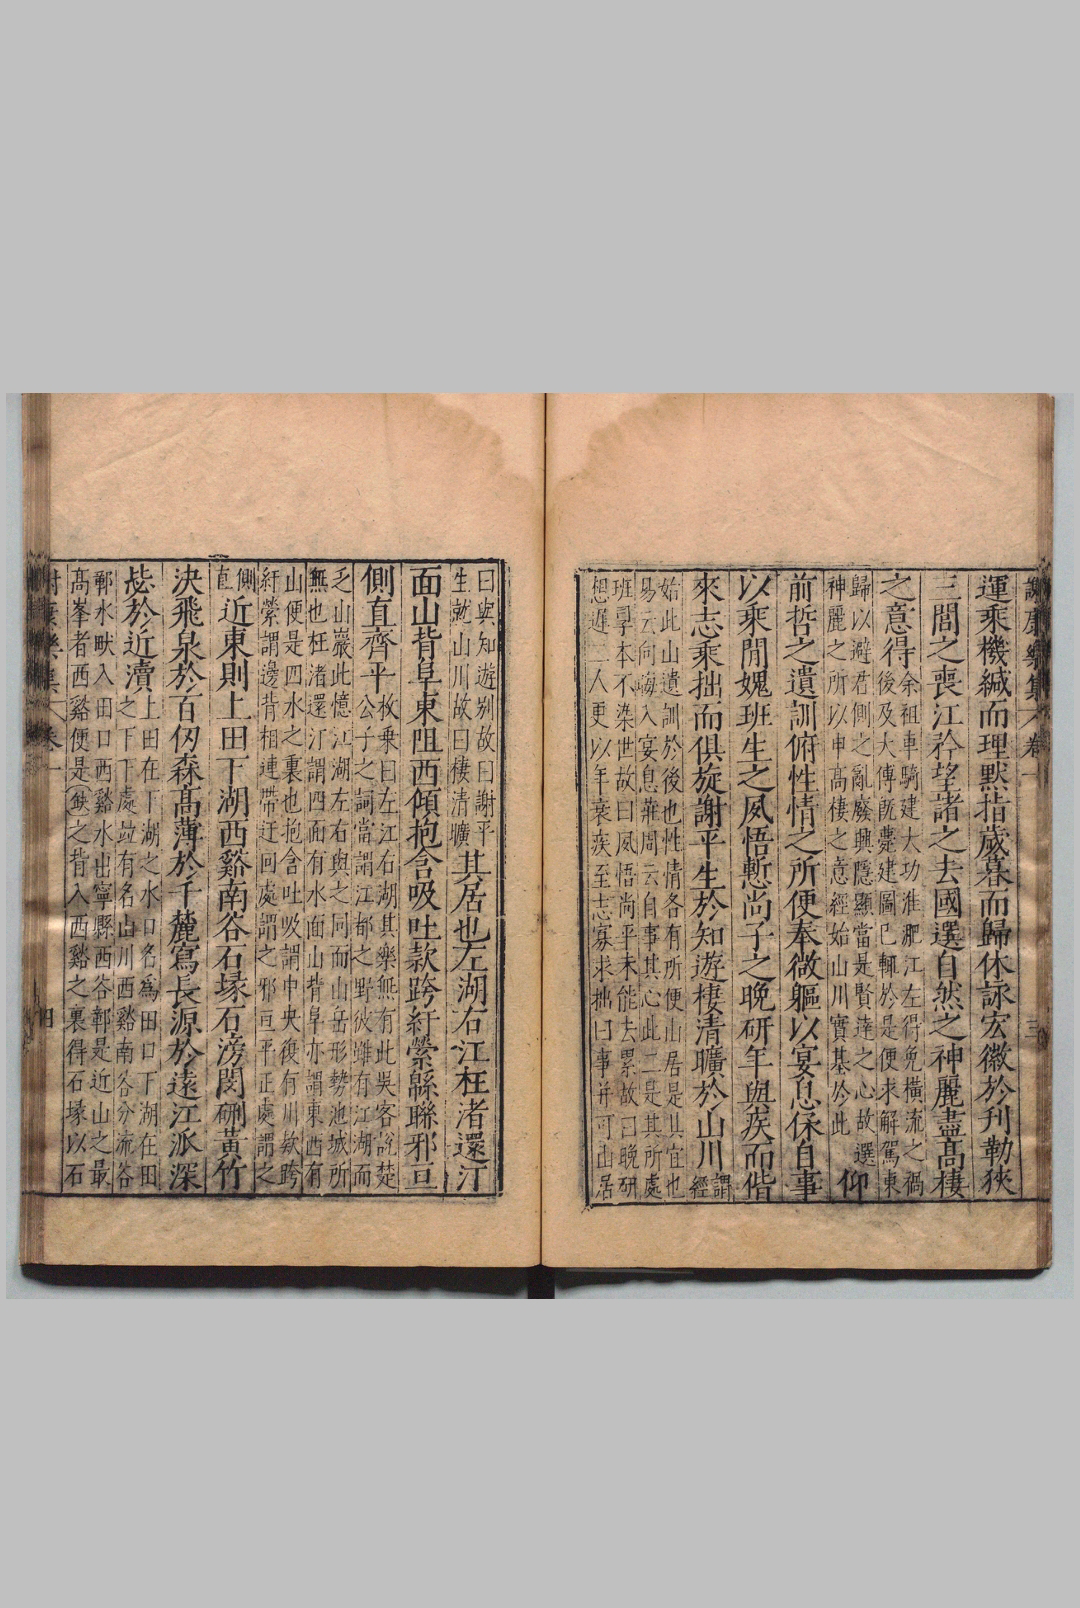 謝康樂集 卷一 三
運乘機緘而理默指歲暮而歸休詠宏徽於刋勒狹
三閭之喪江矜望諸之去國選自然之神麗盡高棲
之意得
余祖車騎建大功淮淝江左得免橫流之禍
後及太傅旣薨建圖已輟於是便求解駕東
歸以避君側之亂廢興隱顯當是賢達之心故選
神麗之所以申高棲之意經始山川實基於此
仰
前哲之遺訓俯性情之所便奉微軀以宴息保自事
以乘閒媿班生之夙悟慙尚子之晚研年與疾而偕
來志乘拙而俱旋謝平生於知遊棲清曠於山川
謂
經
始此山遺訓於後也性情各有所便山居是其宜也
易云向晦入宴息莊周云自事其心此二是其所處
班孠本不染世故曰夙悟尚平未能去累故曰晚研
想遲二人更以年衰疾至志寡求拙曰事并可山居
曰與知遊別故曰謝平
生就山川故曰棲清曠
其居也左湖右江枉渚還汀
面山背阜東阻西傾抱含吸吐款跨紆縈緜聯邪亘
側直齊平
枚乗曰左江右湖其樂無有此吳客說楚
公子之詞當謂江都之野彼雖有江湖而
乏山巖此憶江湖左右與之同而山岳形勢池城所
無也枉渚還汀謂四面有水面山背阜亦謂東西有
山便是四水之裏也抱含吐吸謂中央復有川欵跨
紆縈謂邊背相連帶迂回處謂之邪亘平正處謂之
側
直
近東則上田下湖西谿南谷石塚石滂閔硎黃竹
決飛泉於百仞森高薄於千麓寫長源於遠江派深
毖於近瀆
上田在下湖之水口名為田口下湖在田
之下下處竝有名山川西谿南谷分流谷
鄣水畎入田口西谿水出寧縣西谷鄣是近山之最
高峯者西谿便是之背入西谿之裏得石塚以石
謝康樂集 卷一 四